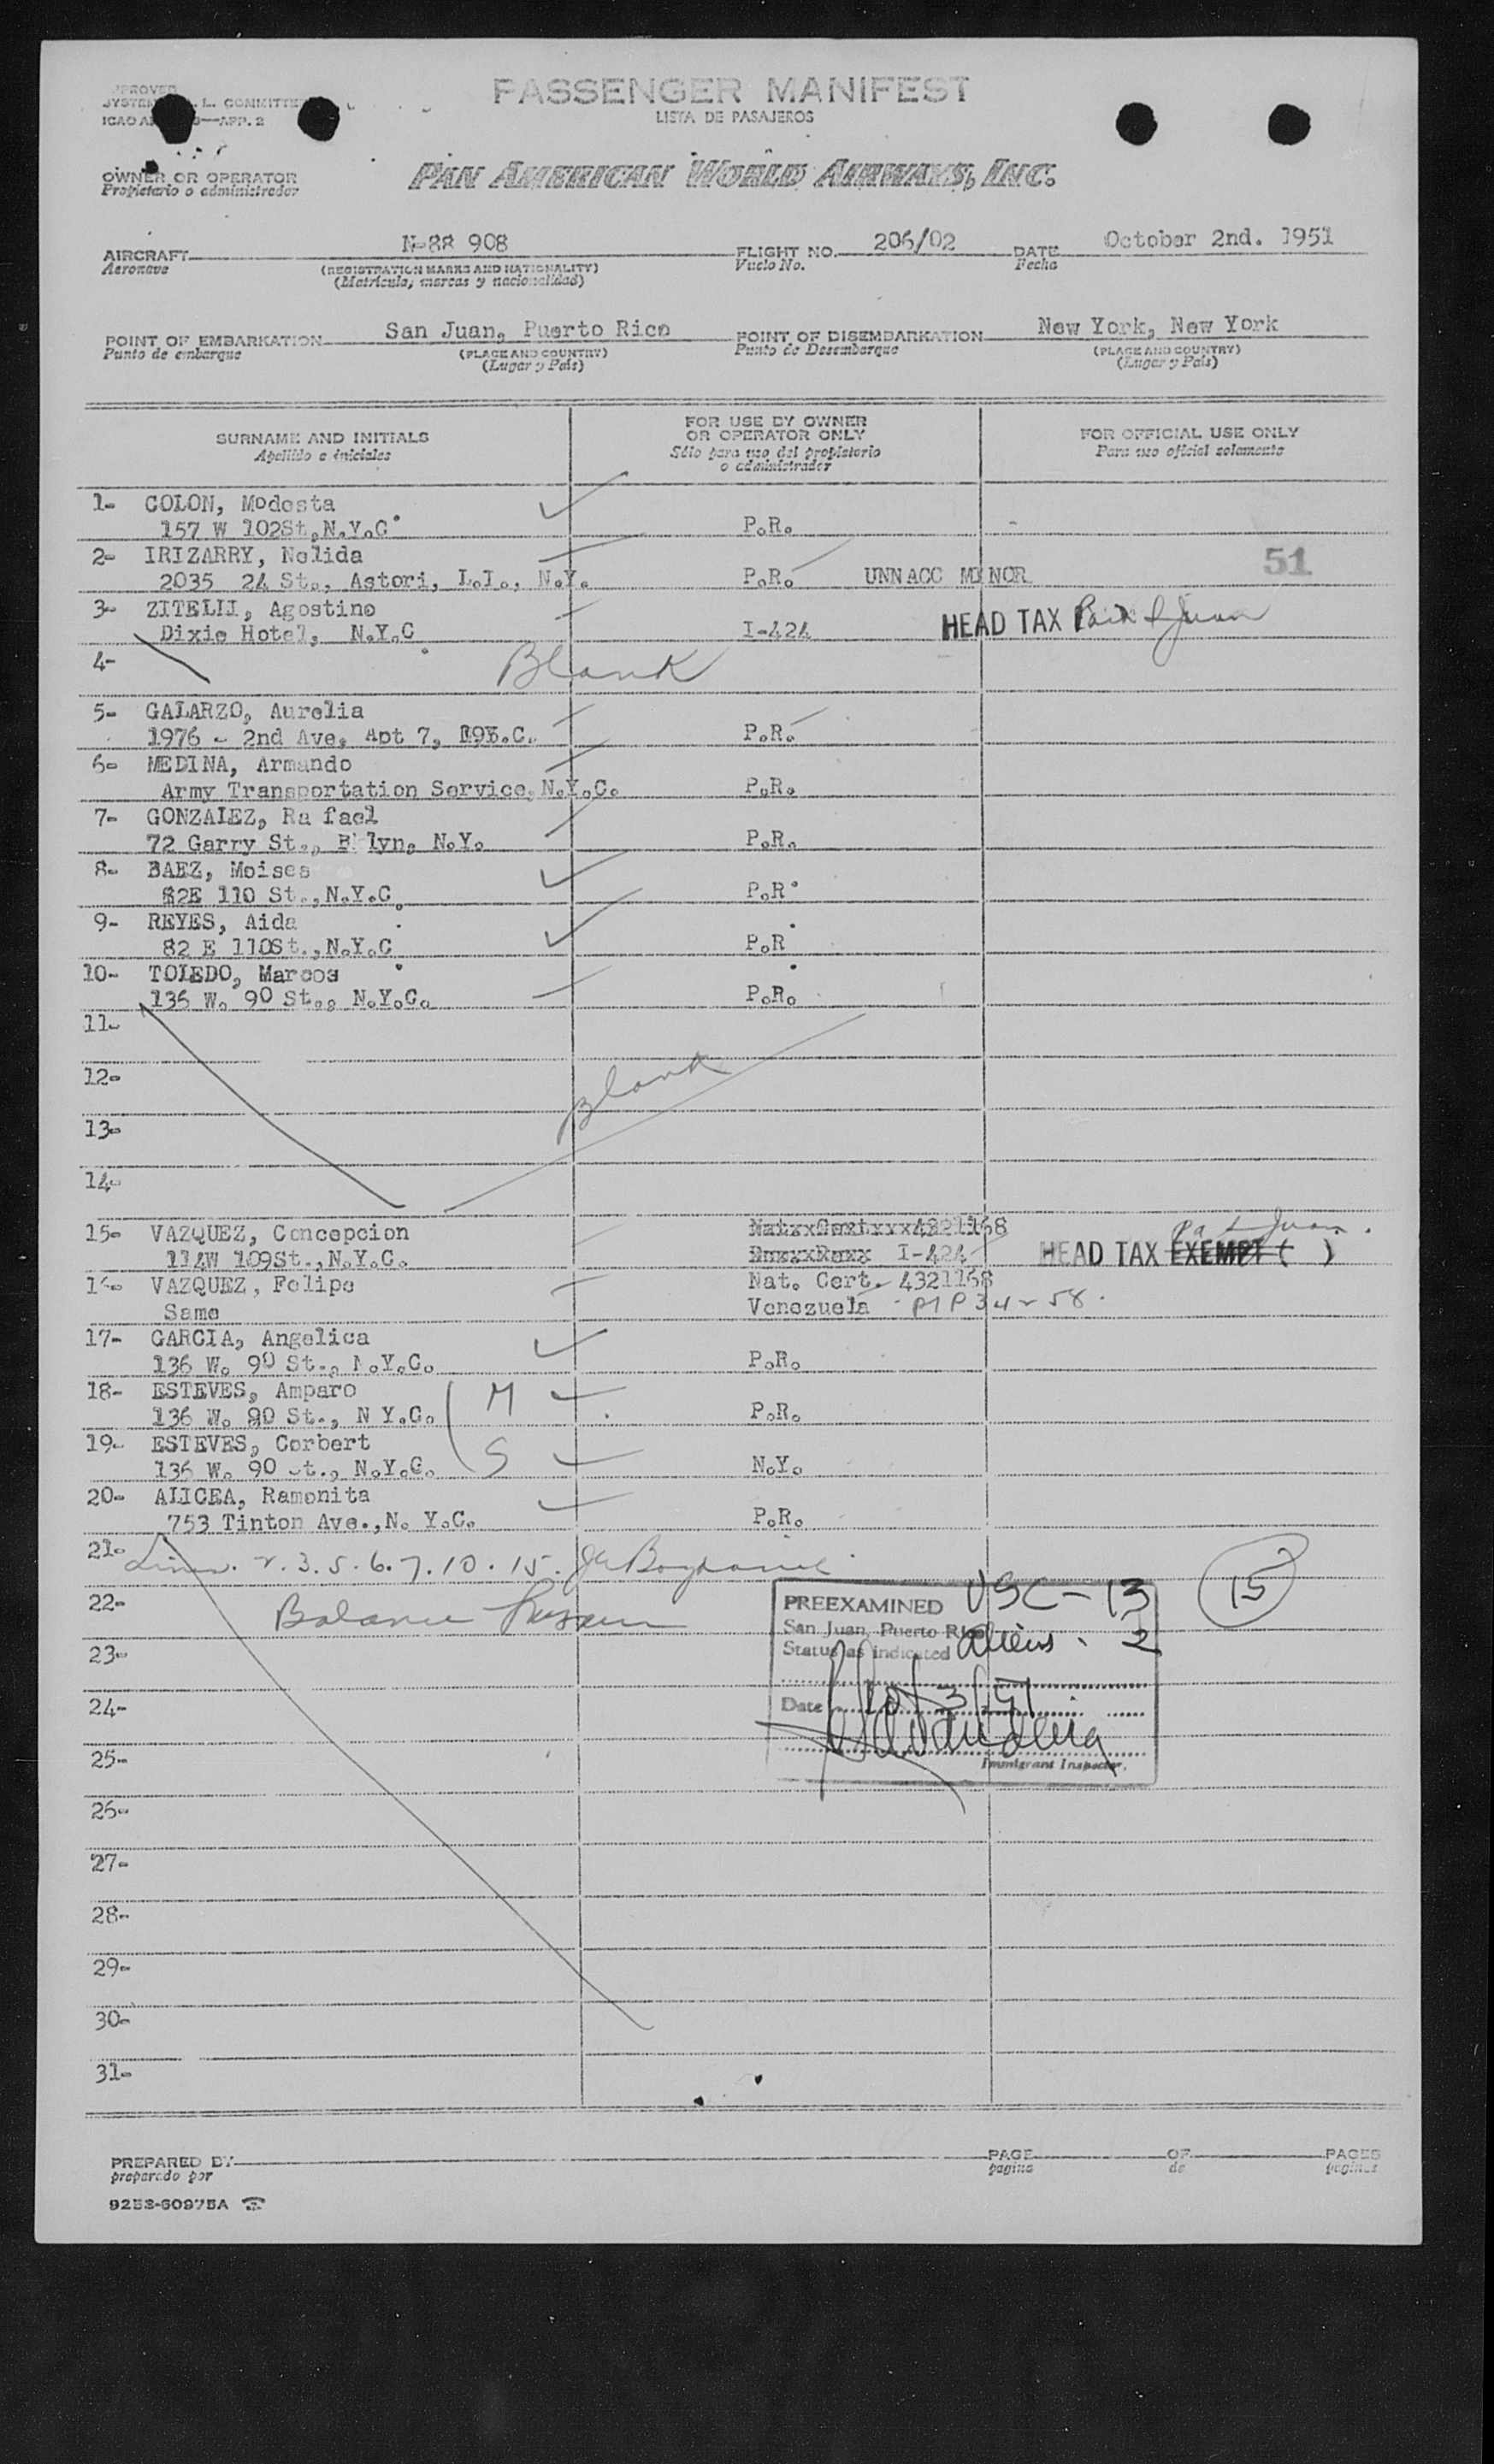 PASSENGER MANIFEST
LISTA DE PASAJEROS
L. COMMITTEE
APP. 2
OWNER OR OPERATOR
Propietario o administrador
PAN AMERICAN WORLD AIRWAYS, INC.
AIRCRAFT N-88 908 FLIGHT NO. 206/02 DATE October 2nd. 1951
Aeronave (REGISTRATION MARKS AND NATIONALITY) Vuelo No. Fecha
(Matricula, marcas y nacionalidad)
POINT OF EMBARKATION San Juan, Puerto Rico POINT OF DISEMBARKATION New York, New York
Punto de embarque (PLACE AND COUNTRY) Punto de Desembarque (PLACE AND COUNTRY)
(Lugar y País) (Lugar y País)
SURNAME AND INITIALS
Apellido e iniciales
FOR USE BY OWNER
OR OPERATOR ONLY
Sólo para uso del propietario
o administrador
FOR OFFICIAL USE ONLY
Para uso oficial solamente
1- COLON, Modesta
157 W 102St,N.Y.C. P.R.
2- IRIZARRY, Nelida 51
2035 24 St., Astori, L.I., N.Y. P.R. UNNACC MINOR
3- ZITELLI, Agostino
Dixie Hotel, N.Y.C. I-424 HEAD TAX Paid S Juan
4- Blank
5- GALARZO, Aurelia
1976 - 2nd Ave, Apt 7, P.R.
6- MEDINA, Armando
Army Transportation Service, N.Y.C. P.R.
7- GONZALEZ, Ra fael
72 Garry St., B lyn, N.Y. P.R.
8- BAEZ, Moises
82E 110 St., N.Y.C. P.R.
9- REYES, Aida
82 E 110St., N.Y.C. P.R.
10- TOLEDO, Marcos
136 W. 90 St., N.Y.C. P.R.
11-
12- Blank
13-
14-
15- VAZQUEZ, Concepcion 4321168 Juan
114W 109St., N.Y.C. I-424 HEAD TAX EXEMPT ( )
16- VAZQUEZ, Felipe Nat. Cert. 4321168
Same Venezuela
17- GARCIA, Angelica
136 W. 90 St., N.Y.C. P.R.
18- ESTEVES, Amparo M
136 W. 90 St., N Y.C. P.R.
19- ESTEVES, Corbert S
136 W. 90 St., N.Y.C. N.Y.
20- ALICEA, Ramonita
753 Tinton Ave., N. Y.C. P.R.
21- Lines. 2. 3. 5. 6. 7. 10. 15.
22- Balance
PREEXAMINED USC-13 15
San Juan, Puerto Rico
Status as indicated Aliens - 2
23-
24- Date Oct 3/51
25- Immigrant Inspector.
26-
27-
28-
29-
30-
31-
PREPARED BY PAGE OF PAGES
preparado por pagina de paginas
9253-60975A